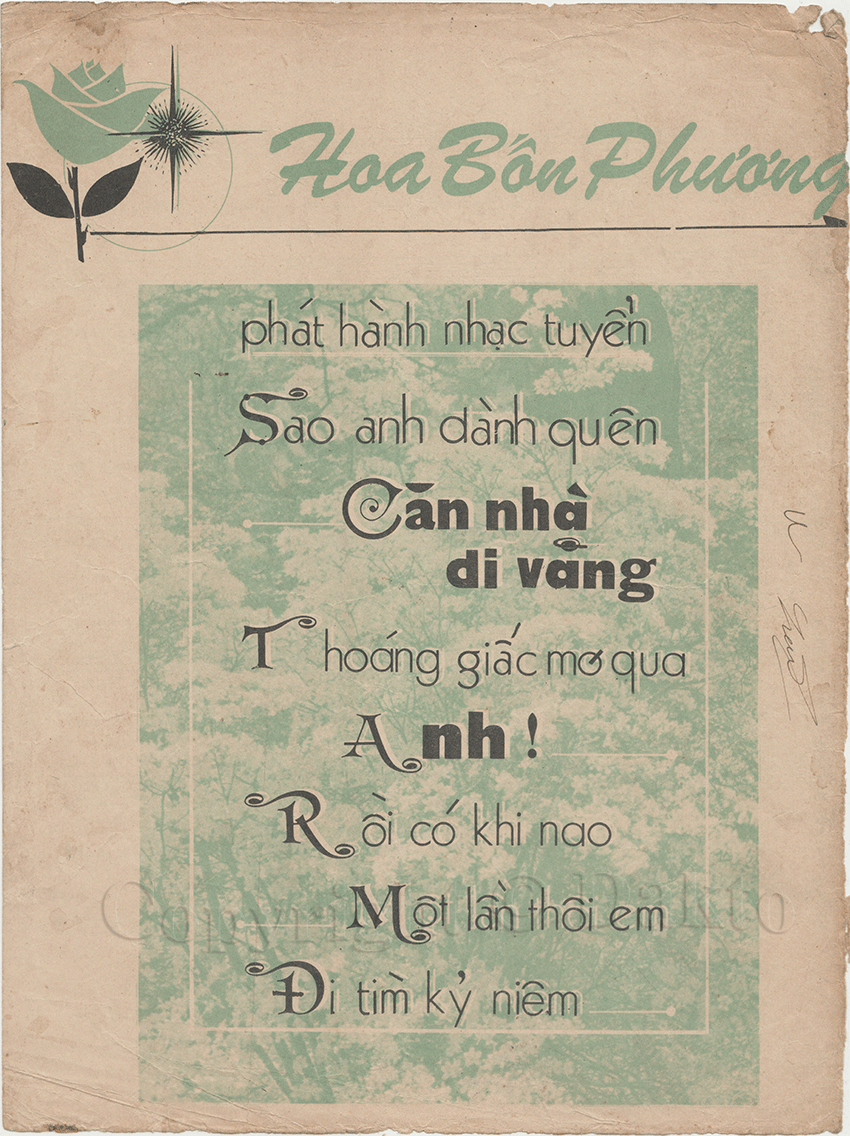 Hoa Bốn Phương
phát hành nhạc tuyển
Sao anh dành quên
Căn nhà
di vãng
Thoáng giấc mơ qua
Anh !
Rồi có khi nao
Một lần thôi em
Đi tìm kỷ niêm
Copyright